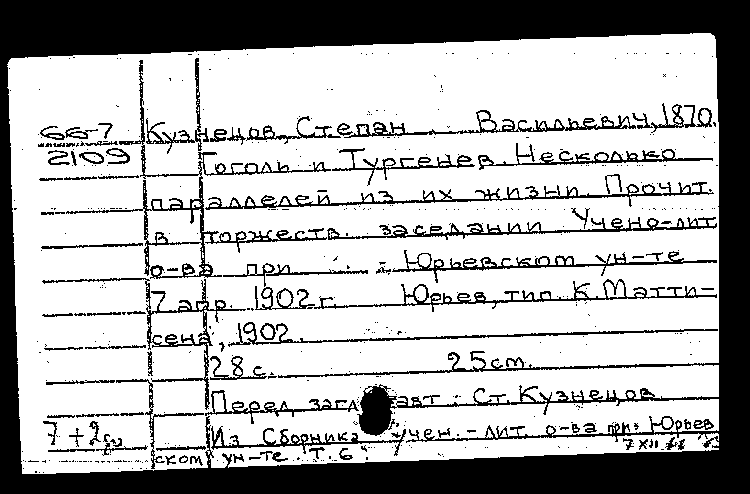 66-7 Кузнецов, Степан Васильевич, 1870.
2109 Гоголь и Тургенев. Несколько
параллелей из их жизни. Прочит.
в торжеств. заседании Учено-лит.
о-ва при Юрьевском ун-те
7 апр. 1902 г. Юрьев, тип. К. Матти-
сена, 1902.
28 с. 25 см.
Перед загл. авт.: Ст. Кузнецов.
7+2 Из Сборника учен.-лит. о-ва при Юрьев
ском ун-те. Т. 6.